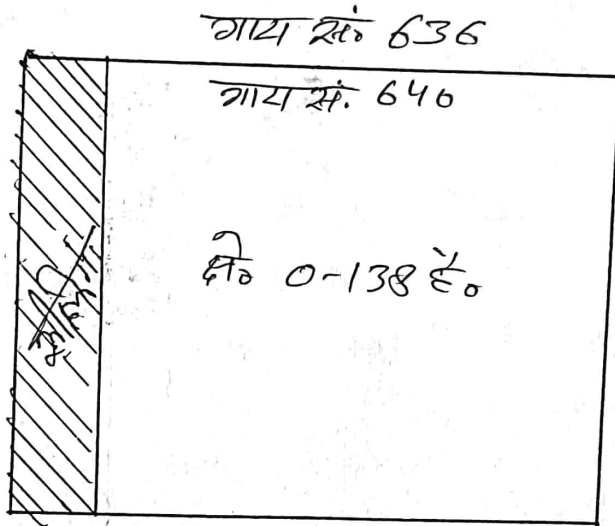 गाटा सं० 636
गाटा सं. 640
क्षे० 0-138 है०